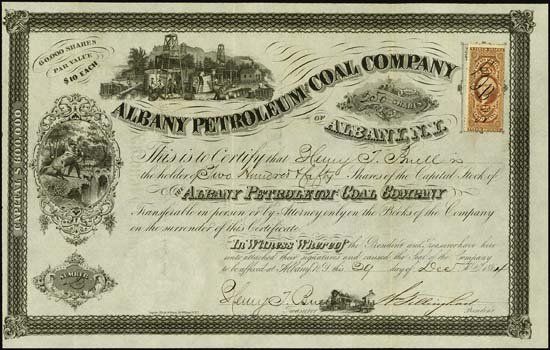 60,000 SHARES
PAR VALUE
$10 EACH
CAPITAL $600,000
ALBANY PETROLEUM COAL COMPANY
250 SHARES
OF
ALBANY, N.Y.
This is to Certify that Henry T. Buell is
the holder of Two Hundred & fifty Shares of the Capital Stock of
THE ALBANY PETROLEUM COAL COMPANY
Transferable in person or by Attorney only on the Books of the Company
on the surrender of this Certificate
In Witness Whereof the President and Treasurer have here
unto attached their signatures and caused the Seal of the Company
to be affixed at Albany N.Y. this 29 day of Dec 1864
NUMBER
Henry T. Buell
Treasurer
President